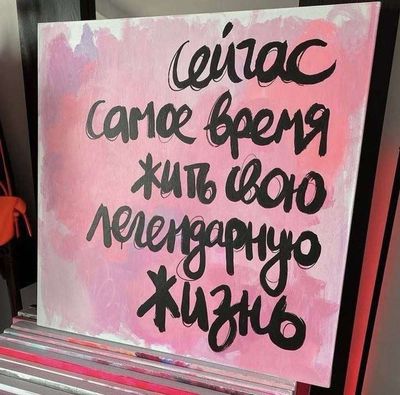 сейчас
самое время
жить свою
легендарную
жизнь